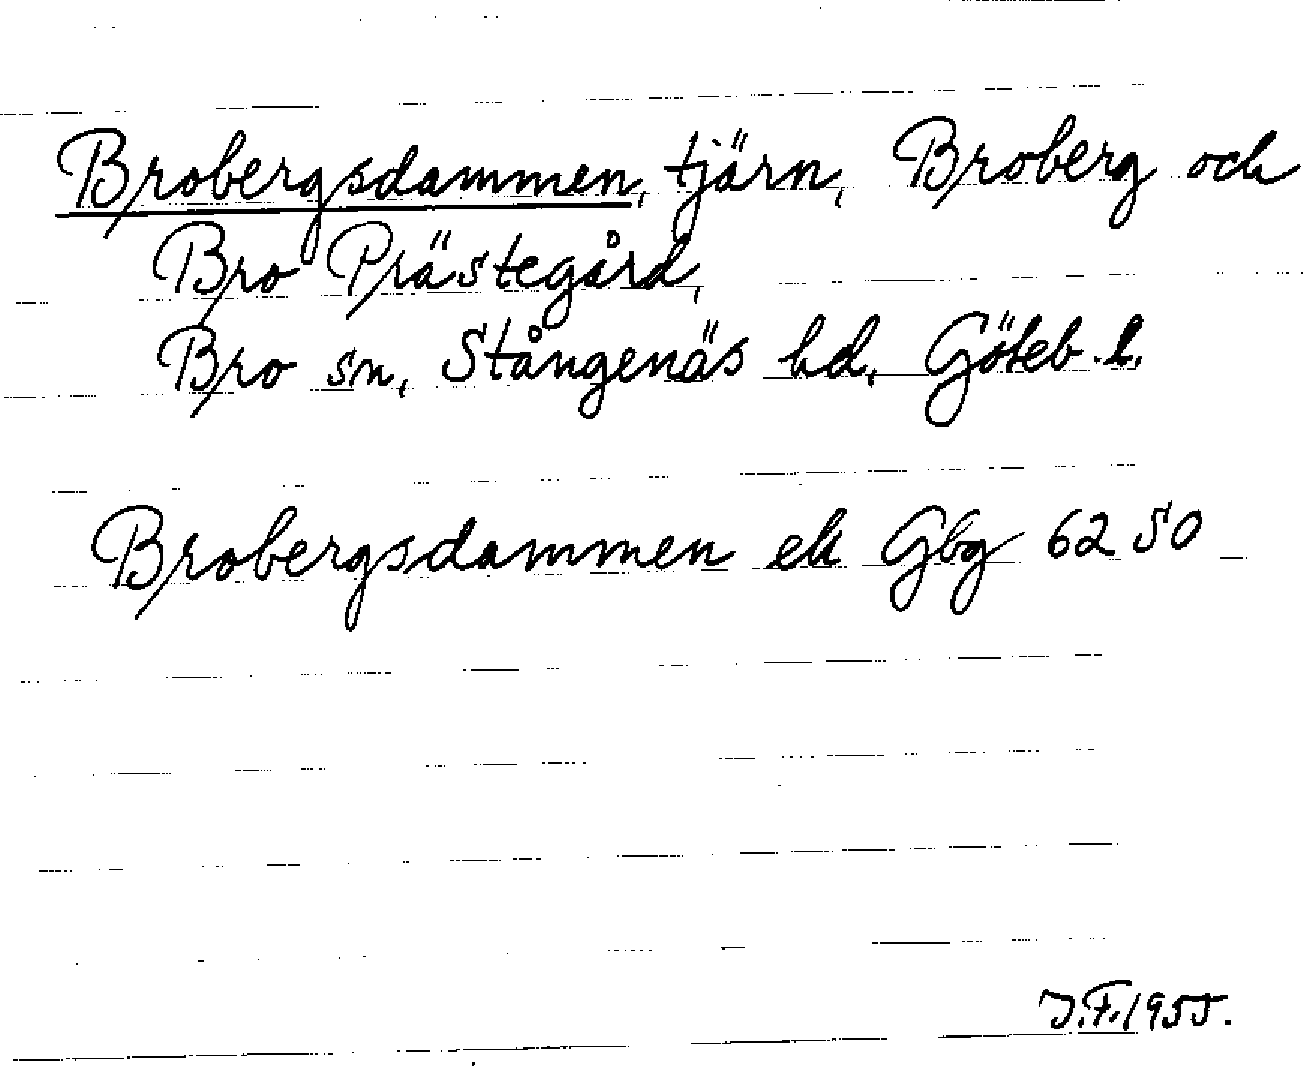 Brobergsdammen, tjärn, Broberg och
Bro Prästegård,
Bro sn, Stångenäs hd, Göteb. l.
Brobergsdammen ek Gbg 6250
J.F. 1955.